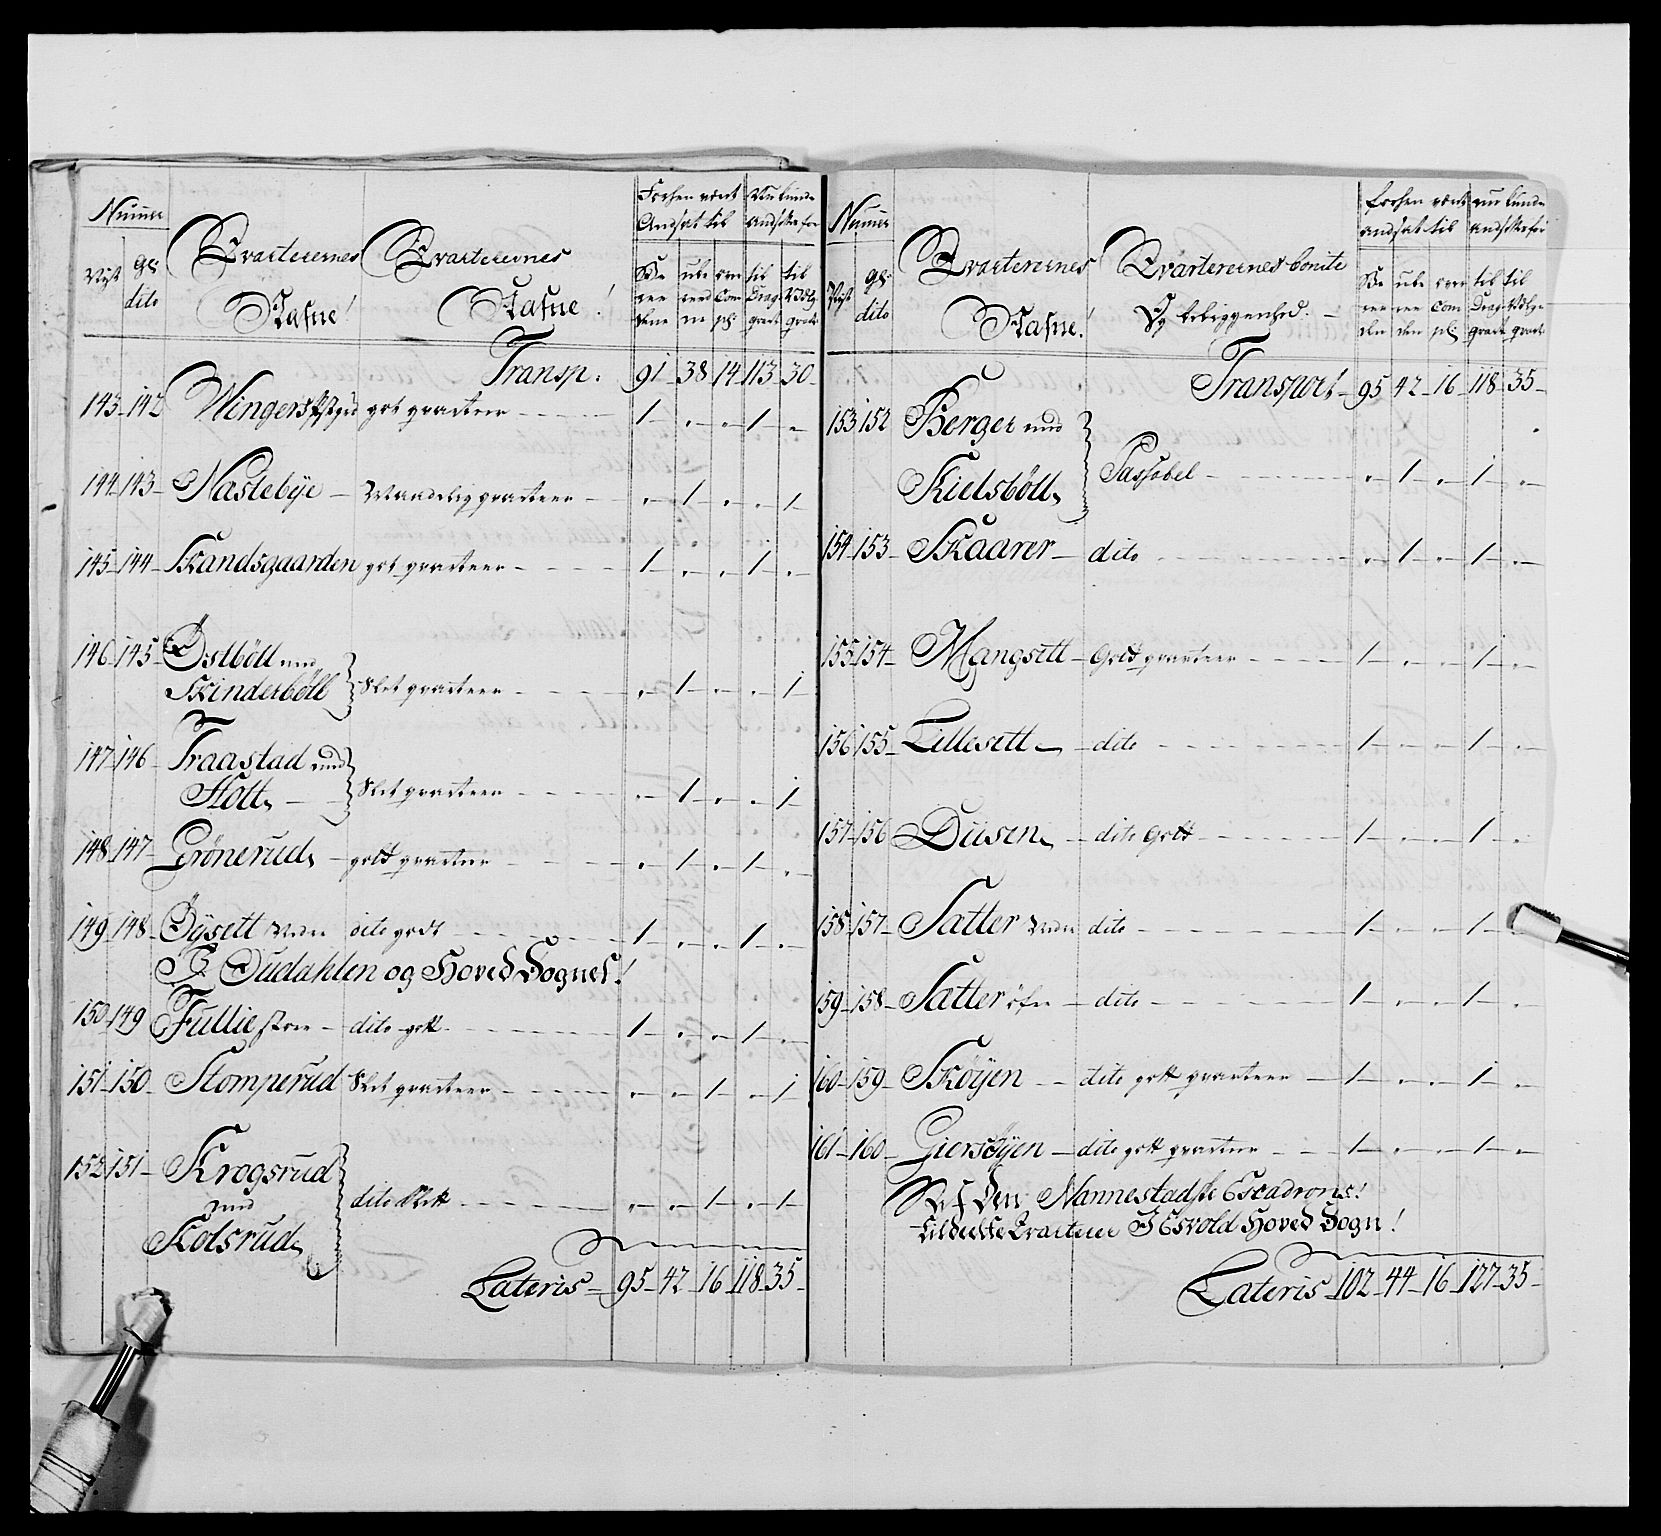 Numer
Qvarterernes
Nafne!
Qvarterernes
Nafne!
dito
til til
Transp: 91 38 14 113 30
143 142 Winger got qvarteer 1 1
144 143 Nastebÿe qvarteer 1 1
145 144 Skandsgaarden got qvarteer 1 1
146 145 Østböll
Skinderböll Slet qvarteer 1 1
147 146 Traastad
Holt Slet qvarteer 1 1
148 147 Grönerud gott qvarteer 1 1
149 148 Öÿsett dito godt 1 1
I Sudahlen og Hoved Sognet!
150 149 Fullie dito gott 1 1
151 150 Stomperud Slet qvarteer 1 1
152 151 Krogsrud
Kolsrud dito Slett 1 1
Lateris 95 42 16 118 35
Numer
Qvarterernes
Nafne!
Qvarterernes bonite
Og beliggenhed.
dito
til til
Transport 95 42 16 118 35
153 152 Berger
Kielsböll Passabel 1 1
154 153 Skaarer dito 1 1
155 154 Mangsett Gott qvarteer 1 1
156 155 Lillesett dito 1 1
157 156 Düsen dito Gott 1 1
158 157 Satter dito 1 1
159 158 Satter dito 1 1
160 159 Sköÿen dito gott qvarteer 1 1
161 160 Giersöÿen dito gott qvarteer 1 1
Den Nannestadske Escadrons!
Qvarteer I Esvold Hoved Sogn!
Lateris 102 44 16 127 35